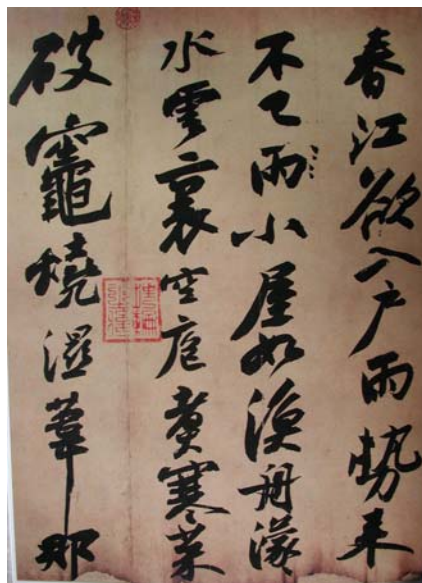 春江欲入戶雨勢來
不已雨小屋如漁舟濛〻
水雲裏空庖煑寒菜
破竈燒濕葦那